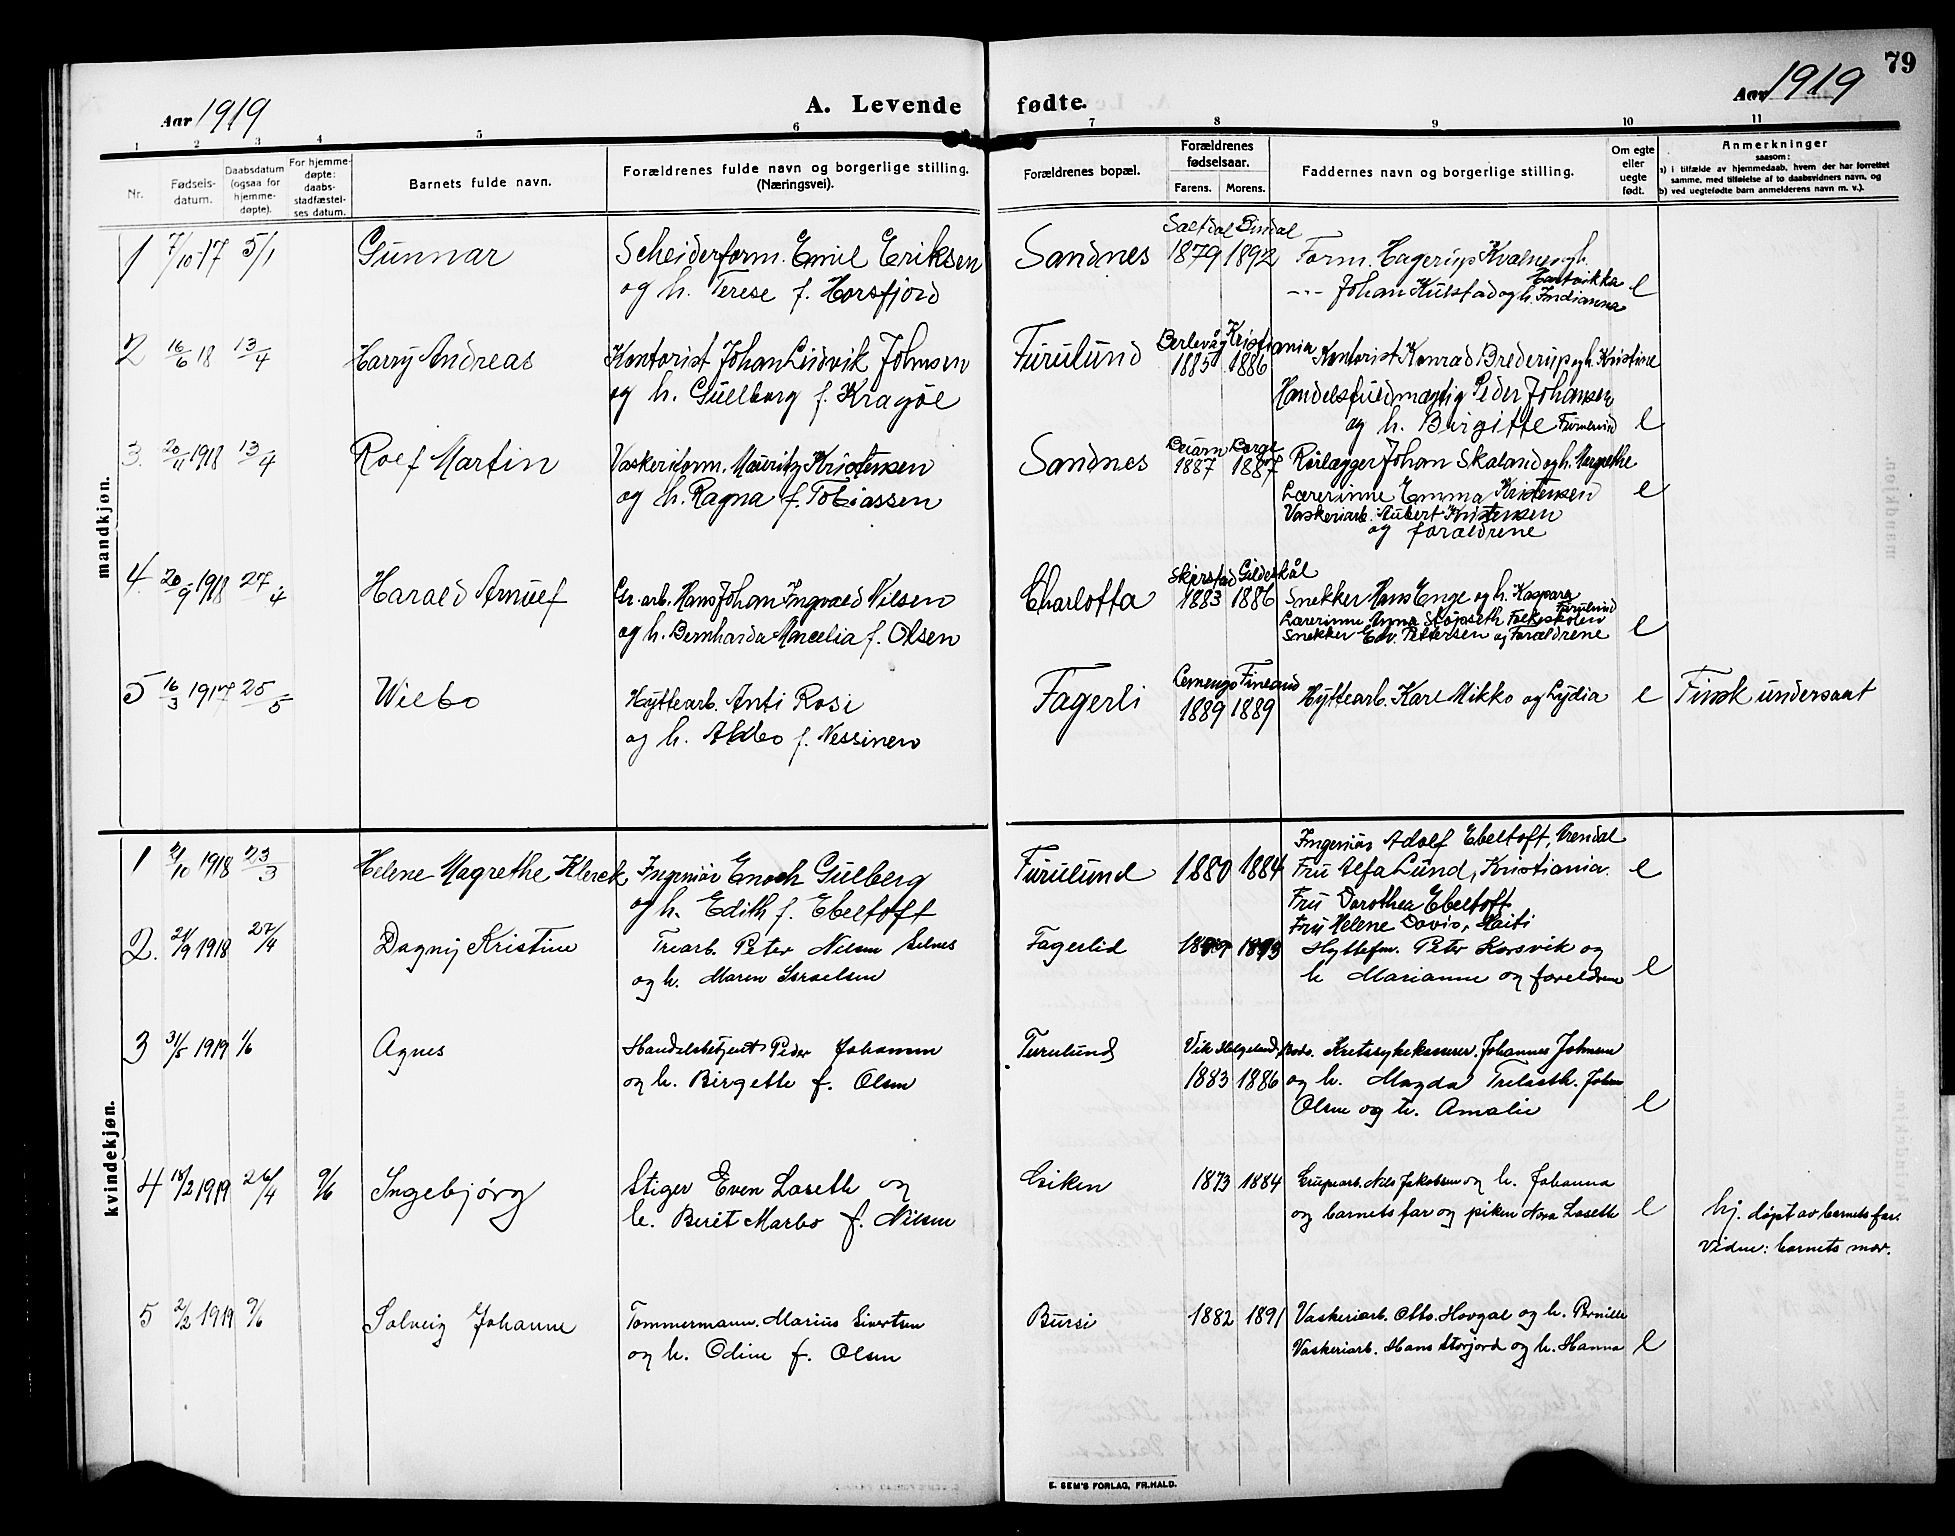 79
Aar 1919
A. Levende fødte.
Aar 1919
1 2 3 4 5 6 7 8 9 10 11
Nr.
Fødsels-datum.
Daabsdatum (ogsaa for hjemme-døpte).
For hjemme-døpte: daabs-stadfæstel-ses datum.
Barnets fulde navn.
Forældrenes fulde navn og borgerlige stilling. (Næringsvei).
Forældrenes bopæl.
Forældrenes fødselsaar.
Farens. Morens.
Faddernes navn og borgerlige stilling.
Om egte eller uegte født.
Anmerkninger
saasom:
a) i tilfælde av hjemmedaab, hvem der har forrettet samme, med tilføielse af to daabsvidners navn, og
b) ved uegtefødte barn anmelderens navn m. v.).
mandkjøn.
1 7/10-17 5/1 Gunnar
Scheiderform. Emil Eriksen
og h. Terese f. Horsfjord
Sandnes
Saltdal Bindal
1879 1892
Form. Hagerup Kvalnes og h. Hartvikka
--- Johan Kulstad og h. Indianna e
2 16/6 18 13/4 Harry Andreas
Kontorist Johan Ludvik Johnsen
og h. Gulborg f. Kragøe
Furulund
Berlevåg Kristiania
1885 1886
Kontorist Konrad Brederup og h. Kristine
Handelsfuldmægtig Peder Johansen
og h. Birgitte Furulund e
3. 20/11 1918 13/4 Rolf Martin
Vaskeriform. Mauritz Kristensen
og h. Ragna f. Tobiassen
Sandnes
Beiarn Borge
1887 1887
Rørlægger Johan Skaland og h. Margrethe
Lærerinne Emma Kristensen e
Vaskeriarb. Aubert Kristensen
og forældrene
4. 20/9 1918 27/4 Harald Arnulf
Gr.arb. Hans Johan Ingvald Nilsen
og h. Bernharda Marcelia f. Olsen
Charlotta
Skjerstad Gildeskål
1883 1886
Snekker Hans Enge og h. Kaspara Furulund
Lærerinne Anna Støpseth Folkeskolen
Snekker Edv. Pettersen og Forældrene e
5 16/3 1917 25/5 Wilbo
Hyttearb. Anti Rosi
og h. f. Nessinen
Fagerli
Finland
1889 1889
Hyttearb. Karl Mikko og Lydia e
Finsk undersaat
kvindekjøn.
1 2/10 1918 23/3 Helene Magrethe Klerck
Ingeniør Enoch Gulberg
og h. Edith f. Ebeltoft
Furulund
1880 1884
Ingeniør Adolf Ebeltoft, Arendal
Fru Alfa Lund, Kristiania. e
Fru Dorothea Ebeltoft
Fru Helene Davis, Haiti
2. 21/9 1918 27/4 Dagny Kristine
Trearb. Peter Nilsen Selnes
og h. Maren Israelsen
Fagerlid
1893
Hyttefm. Peter Korsvik og
h Marianne og foreldrene e
3 31/5 1919 1/6 Agnes
Handelsbetjent Peder Johansen
og h. Birgette f. Olsen
Furulund
Vik Helgeland. Bodø.
1883 1886
Kretssykekasserer. Johannes Johnsen
og h. Magda Johan
Olsen og h. Amalie e
4 18/2 1919 26/4 9/6 Ingebjørg
Stiger Even Laseth og
h. Berit Marbo f. Nilsen
1873 1884
Grupearb. Nils Jakobsen og h. Johanna
og barnets far og piken Nora Laseth e
hj. døpt av barnets far.
Vidne: barnets mor.
5 2/2 1919 9/6 Solveig Johanne
Tommermann. Marius Sivertsen
og h. Odine f. Olsen
Bursi
1882 1891
Vaskeriarb. Otto. Hovgal og h. Pernille
Vaskeriarb. Hans Storjord og h. Hanna e
E. SEM'S FORLAG, FR.HALD.